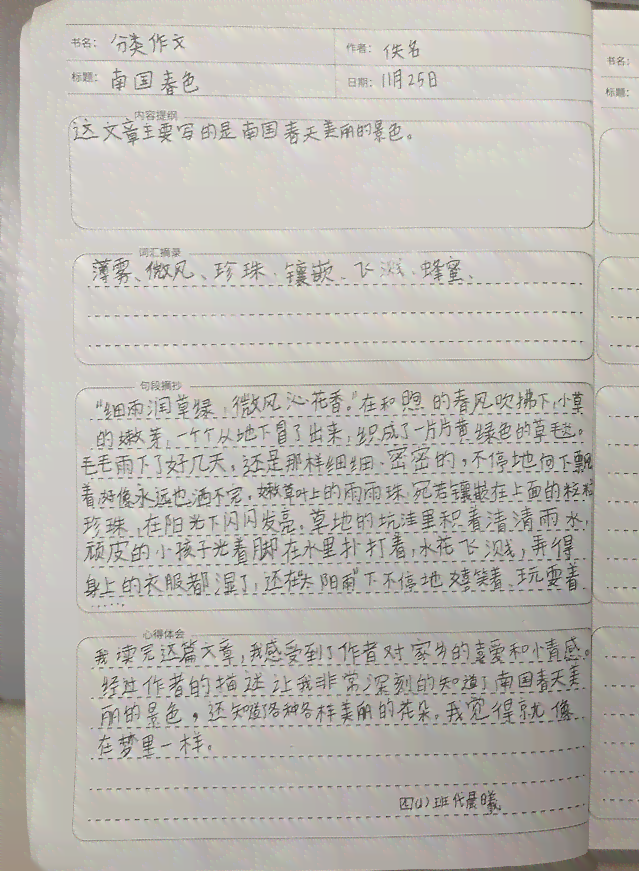 书名： 分类作文
作者： 佚名
标题： 南国春色
日期： 11月25日
内容提纲
这文章主要写的是南国春天美丽的景色。
词汇摘录
薄雾、微风、珍珠、镶嵌、飞溅、蜂蜜、
句段摘抄
“细雨润草绿，微风沁花香。”在和煦的春风吹拂下，小草
的嫩芽，一个个从地下冒了出来，织成了一片片黄绿色的草毯。
毛毛雨下了好几天，还是那样细细、密密的，不停地向下飘
着好像永远也洒不完，嫩草叶上的雨雨珠宛若镶嵌在上面的粒粒
珍珠，在阳光下闪闪发亮。草地的坑洼里积着清清雨水，
顽皮的小孩子光着脚在水里扑打着，水花飞溅，弄得
身上的衣服都湿了，还在“太阳雨”下不停地嬉笑着、玩耍着
……
心得体会
我读完这篇文章，我感受到了作者对家乡的喜爱和小情感。
经过作者的描述让我非常深刻的知道了南国春天美
丽的景色，还知道了各种各样美丽的花朵。我觉得就像
在梦里一样。
四(1)班代晨曦
书名：
标题：